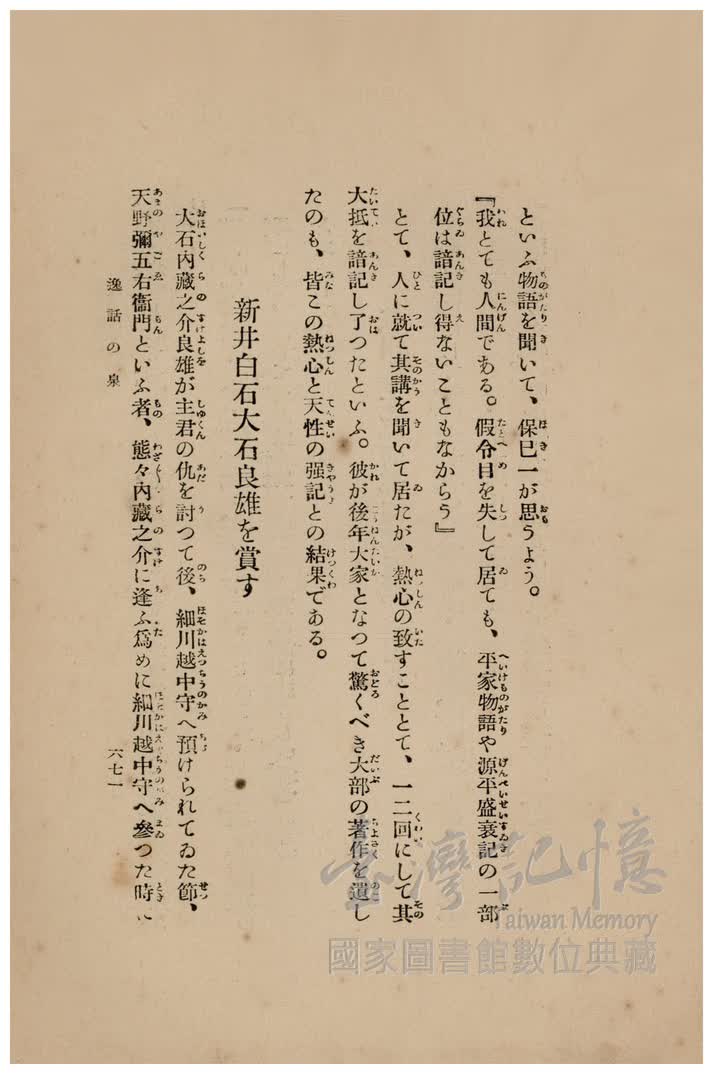 といふ物語を聞いて、保巳一が思うよう。
『我とても人間である。假令目を失して居ても、平家物語や源平盛衰記の一部
位は諳記し得ないこともなからう』
とて、人に就て其講を聞いて居たが、熱心の致すこととて、一二回にして其
大抵を諳記し了つたといふ。彼が後年大家となつて驚くべき大部の著作を遺し
たのも、皆この熱心と天性の强記との結果である。
新井白石大石良雄を賞す
大石內藏之介良雄が主君の仇を討つて後、細川越中守へ預けられてゐた節、
天野彌五右衞門といふ者、態々內藏之介に逢ふ爲めに細川越中守へ參つた時に
逸話の泉
六七一
臺灣記憶
Taiwan Memory
國家圖書館數位典藏